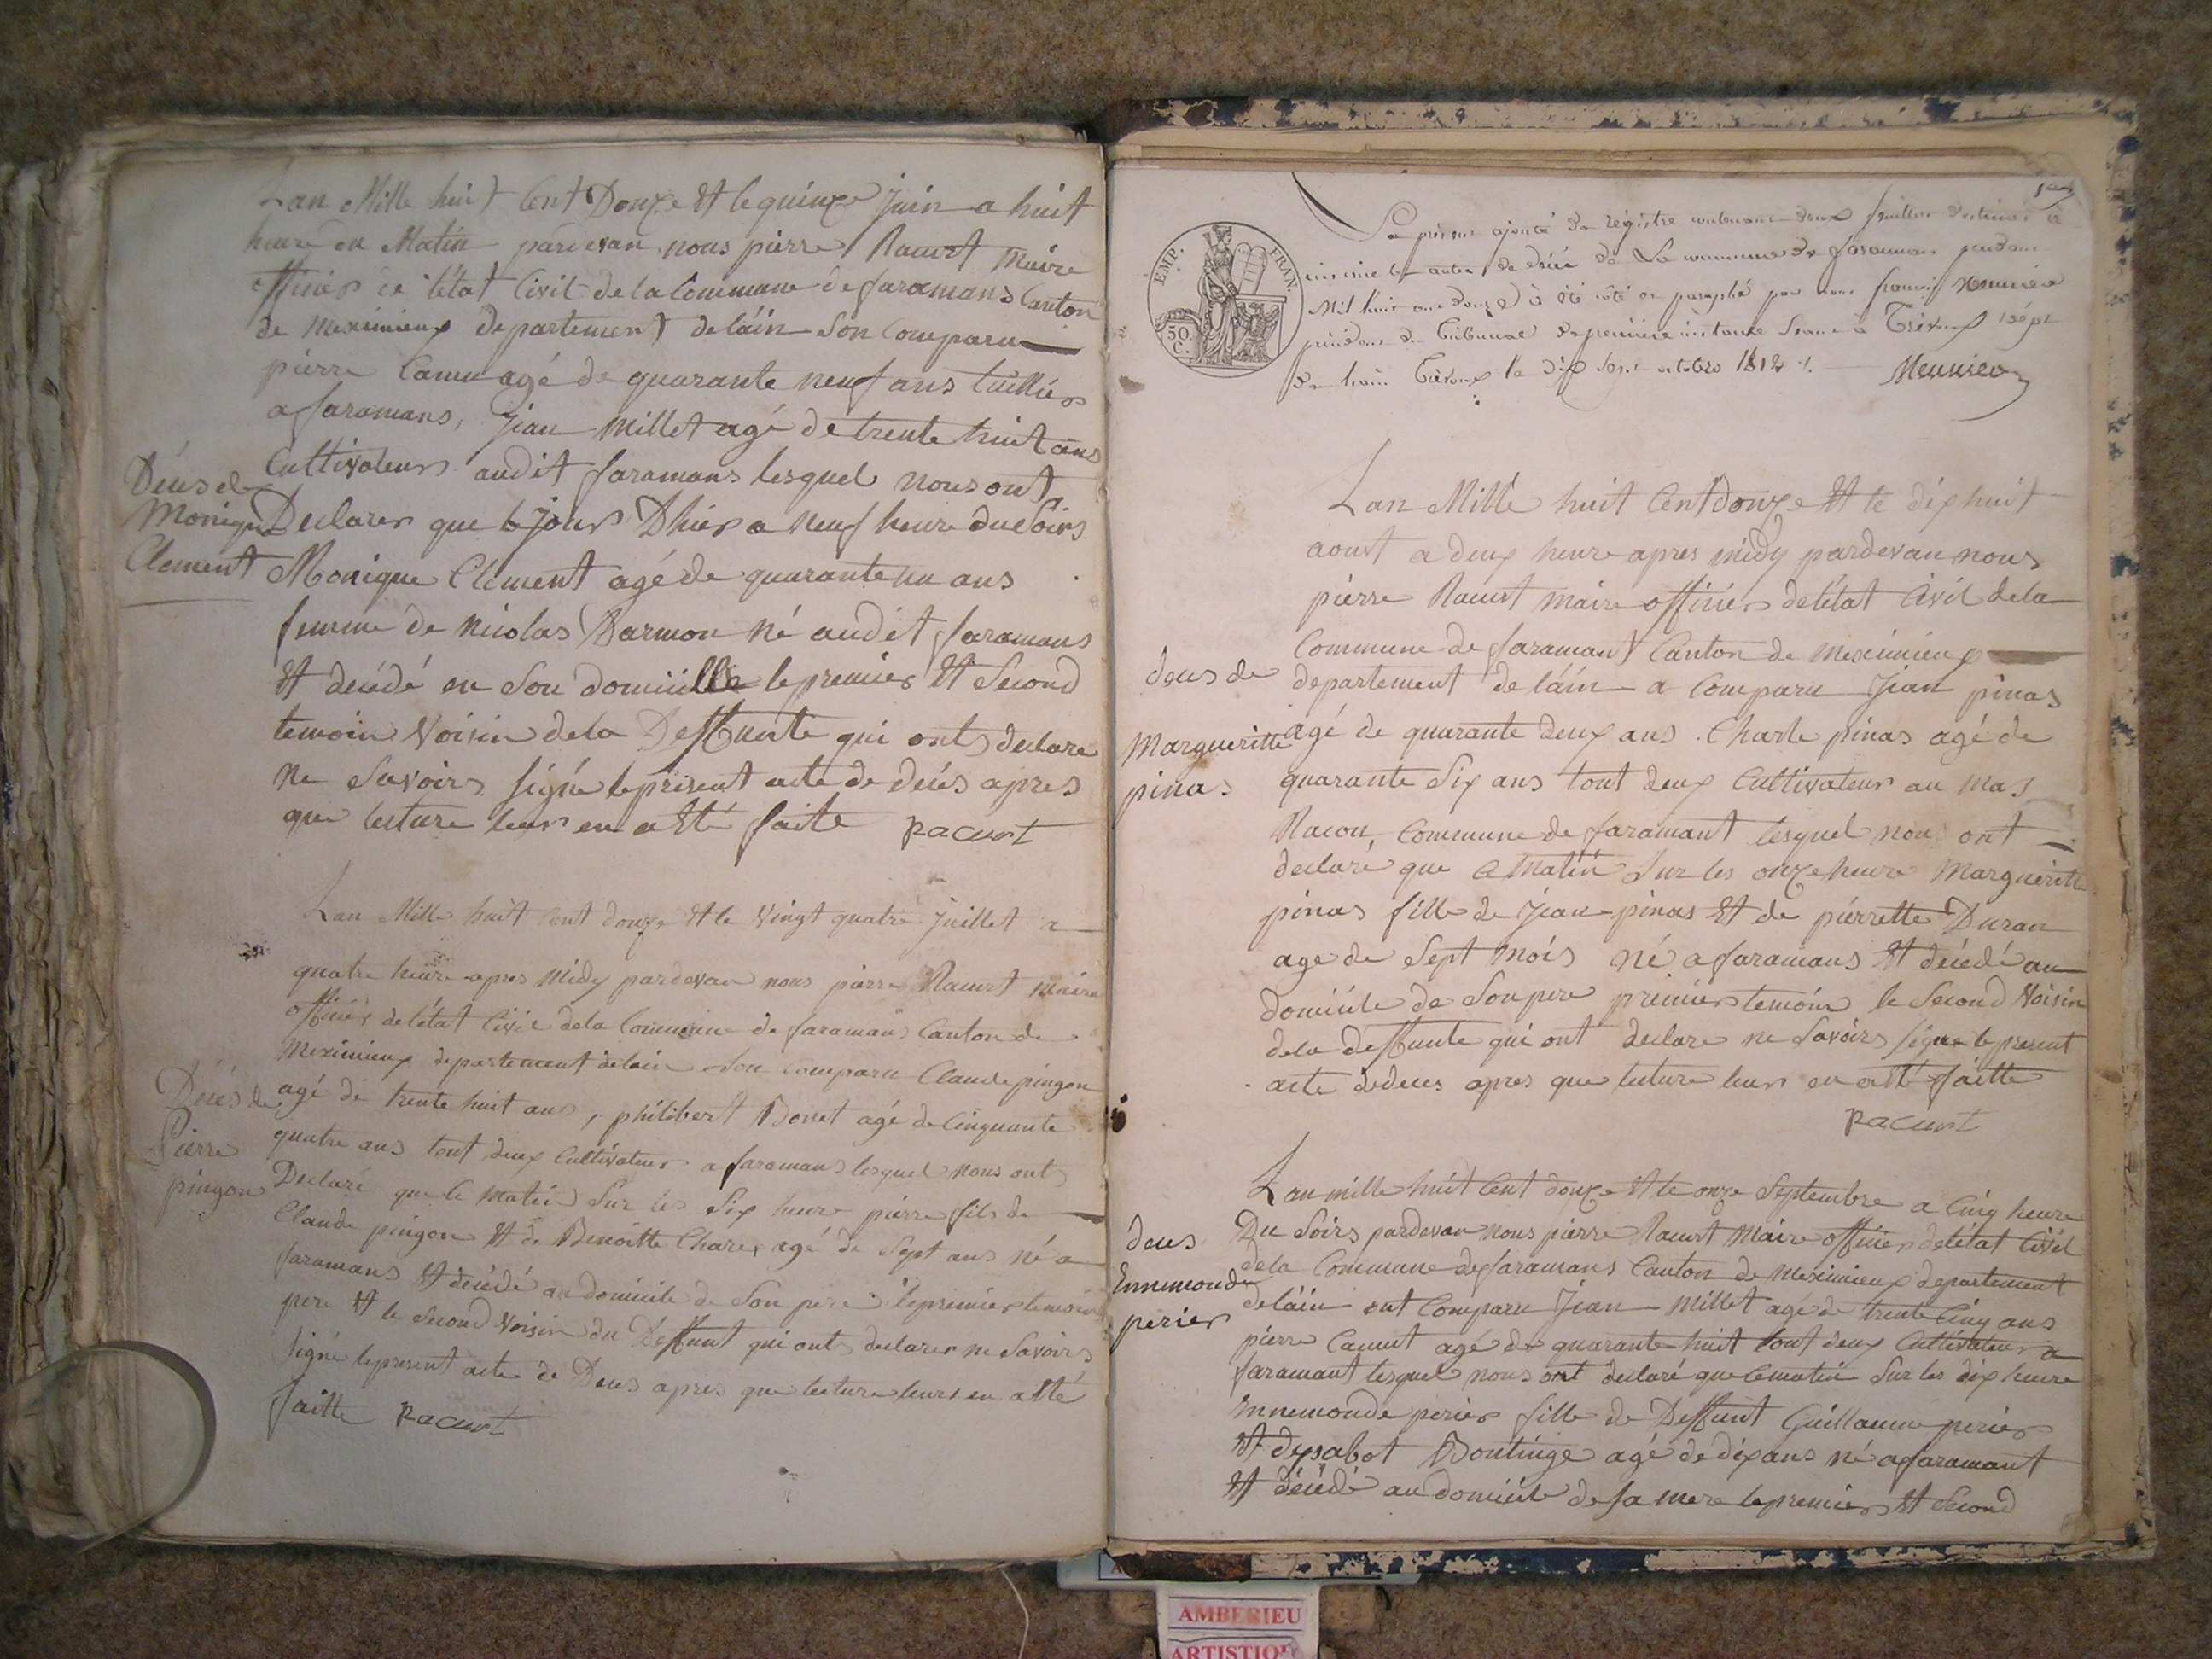 Lan Mille huit Cent Douze Et le quinze juin a huit
heure du Matin pardevan nous pierre Racurt Maire
officier de létat Civil de la Commune de faramans Canton
de meximieux departement de láin Son Comparu
pierre Camu agé de quarante neuf ans tuillier
a faramans, Jean Millet agé de trente huit ans
Cultivateur audit faramans lesquel nous ont
Décés de
Monique
Clement
Declarer que le jour Dhier a neuf heure du Soirs
Monique Clement agé de quarante un ans
femme de nicolas Darmon né audit faramans
Et decédé en Son domicille le premier Et Second
temoin Voisin de la Deffunte qui ont declare
ne Savoirs signé le présent acte de décés apres
que lecture leur en a Eté faite Racurt
Lan Mille huit Cent douze Et le Vingt quatre Juillet a
quatre heure apres Midy pardevan nous pierre Racurt Maire
officier de létat Civil de la Commune de faramans Canton de
Meximieux departement de lain Son comparu Claude pingon
Décés de
Pierre
pingon
agé de trente huit ans, philibert Bonet agé de Cinquante
quatre ans tout deux Cultivateur a faramans lesquel nous ont
Declaré que le matin Sur les Six heure pierre fils de
Claude pingon Et de Benoitte Charer agé de Sept ans né a
faramans Et decédé au domicile de Son pere le premier temoin
pere Et le Second Voisin du Deffunt qui ont declarer ne Savoirs
signé le present acte de Deces apres que lecture leurs en a Eté
faitte Racurt
EMP. FRAN.
50 C.
Le présent ajouté de régistre contenant deux feuillets destinés à
les actes de décès de La commune de faramans pendant
Mil huit cent douze a été coté et paraphé par nous françois Meunier
président du Tribunal de première instance Séant à Trévoux dépt
de l'ain Trévoux le dix Sept octobre 1812 Meunier
Lan Mille huit Cent douze Et le dix huit
aoust a deux heure apres midy pardevan nous
pierre Racurt Maire officier de létat Civil de la
Commune de faramant Canton de meximieux
deces de
Margueritte
pinas
departement de láin a Comparu Jean pinas
agé de quarante deux ans. Charle pinas agé de
quarante Six ans tout deux Cultivateur au Mas
Racon, Commune de faramant lesquel nous ont
declaré que Ce Matin Sur les onze heure Margueritte
pinas fille de Jean pinas Et de pierrette Duran
age de Sept Mois né a faramans Et décédé au
domicile de Son pere premier temoin le Second Voisin
de la deffunte qui ont declare ne Savoirs signe le present
acte de deces apres que lecture leur en a Eté faitte
Racurt
Lan mille huit Cent douze Et le onze Septembre a Cinq heure
deces
Ennemonde
perier
Du Soirs pardevan nous pierre Racurt Maire officier de létat Civil
de la Commune de faramans Canton de Meximieux departement
de láin ont Comparu Jean Millet agé de trente Cinq ans
pierre Camut agé de quarante huit tout deux Cultivateur a
faramant lesquel nous ont declaré que Ce matin Sur les dix heure
Ennemonde perier fille de Deffunt Guillaume perier
Et dysabot Bontinge agé de dix ans né a faramant
Et décédé au domicile de sa mere le premier Et Second
AMBERIEU
ARTISTIQ